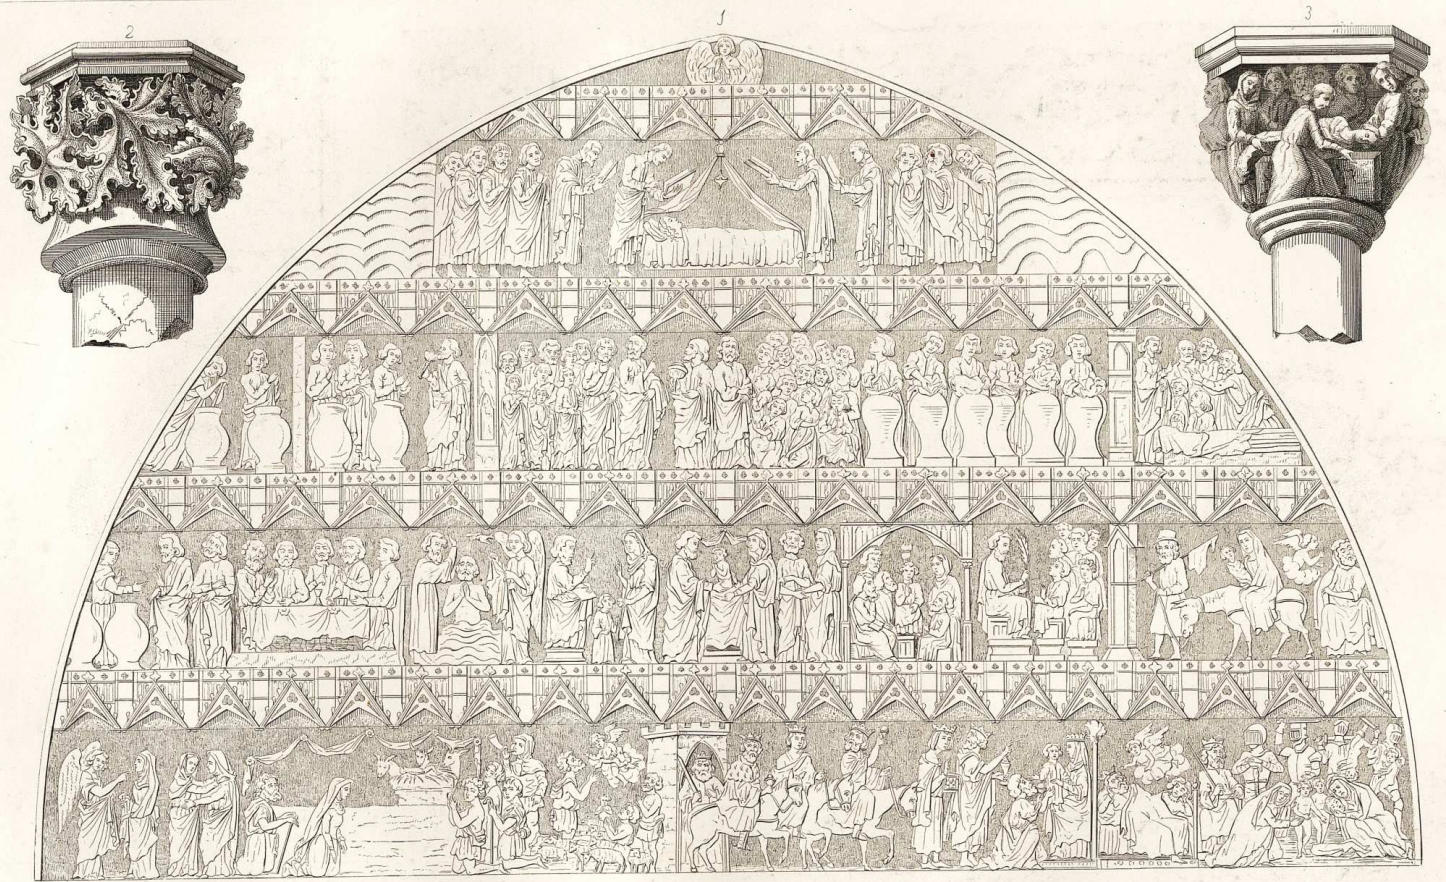 2
1
3